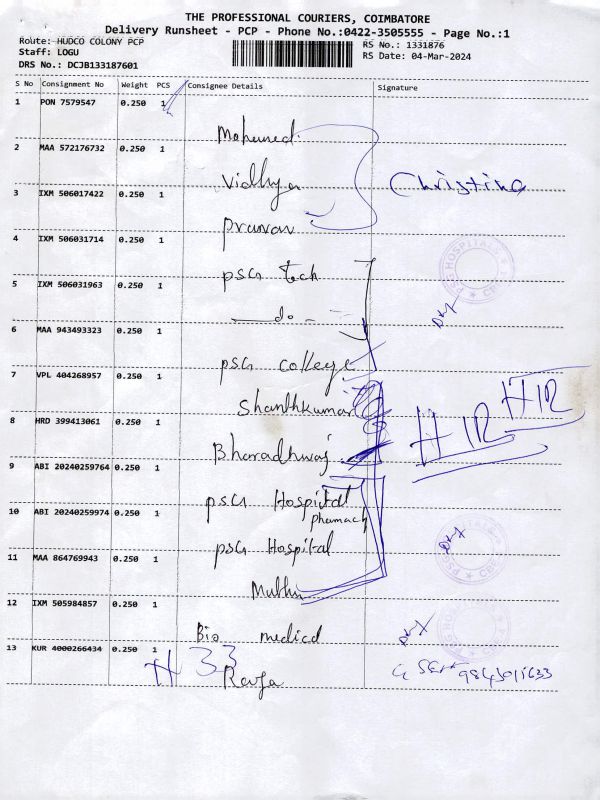 THE PROFESSIONAL COURIERS, COIMBATORE
Delivery Runsheet - PCP - Phone No.:0422-3505555 - Page No.:1
Route: HUDCO COLONY PCP RS No.: 1331876
Staff: LOGU RS Date: 04-Mar-2024
DRS No.: DCJB133187601
S No Consignment No Weight PCS Consignee Details Signature
1 PON 7579547 0.250 1 Mohamed
2 MAA 572176732 0.250 1 Vidhya Christina
3 IXM 506017422 0.250 1 pranav
4 IXM 506031714 0.250 1 psG tech
5 IXM 506031963 0.250 1 do
6 MAA 943493323 0.250 1 psG college
7 VPL 404268957 0.250 1 Shanthkumar
8 HRD 399413061 0.250 1 Bharadhwaj
9 ABI 20240259764 0.250 1 psG Hospital pharmacy
10 ABI 20240259974 0.250 1 psG Hospital
11 MAA 864769943 0.250 1 Muthu
12 IXM 505984857 0.250 1 Bio medical
13 KUR 4000266434 0.250 1 33